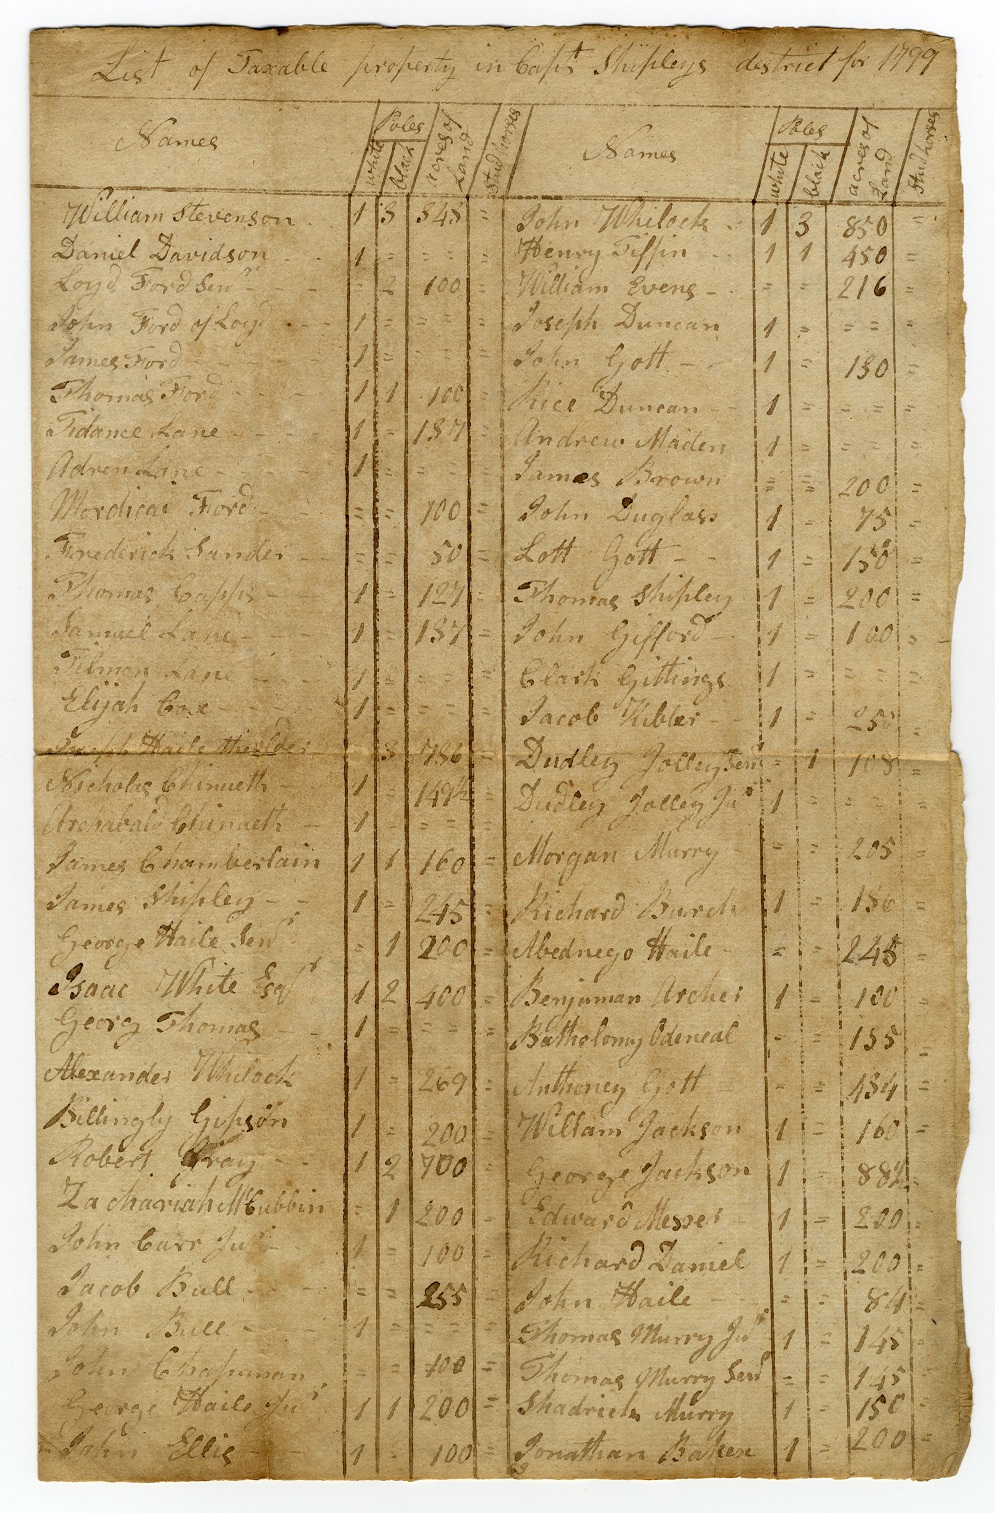 List of Taxable property in Capt Shipleys district for 1799
Names Poles white black acres of Land Stud horses
William Stevenson 1 3 345 =
Daniel Davidson 1 = = = =
Loyd Ford Senr = 2 100 =
John Ford of Loyd 1 = = = =
James Ford 1 = = = =
Thomas Ford 1 1 100 =
Tidance Lane 1 - 187 =
Adren Lane 1 = = = =
Mordicai Ford = = 100 =
Frederick Sander = = 50 =
Thomas Capps 1 = 127 =
Samuel Lane 1 = 187 =
Tilmon Lane 1 = = = =
Elijah Cox 1 = = = =
Joseph Haile the elder 3 786 -
Nicholas Chinueth 1 - 149½ =
Archabald Chinueth 1 - = =
James Chamberlain 1 1 160 =
James Shipley 1 = 245 =
George Haile Senr = 1 200 =
Isaac White Esqr 1 2 400 =
Georg Thomas 1 = = = =
Alexander Whilock 1 = 269 =
Billingly Gipson 1 = 200 =
Robert Gray 1 2 700 =
Zachariah McCubbin = 1 200 =
John Carr Jur 1 = 100 =
Jacob Bull = = 255 =
John Bull 1 = = = =
John Chapman = = 100 =
George Haile Jur 1 1 200 =
John Ellis 1 - 100 =
Names Poles white black acres of Land Stud horses
John Whilock 1 3 850 =
Henry Tiffin 1 1 450 =
William Evens = = 216 =
Joseph Duncan 1 = = = =
John Gott 1 = 130 =
Rice Duncan 1 = = = =
Andrew Maden 1 = = = =
James Brown = = 200 =
John Duglass 1 = 75 =
Lott Gott 1 = 150 =
Thomas Shipley 1 = 200 =
John Gifford 1 = 100 =
Clark Gittings 1 = = = =
Jacob Kibler 1 = 250 =
Dudley Jolley Senr = 1 108 =
Dudley Jolley Jur 1 = = = =
Morgan Murry = = 205 =
Richard Burch 1 = 186 =
Abednego Haile = = 245 =
Benjaman Archer 1 = 100 =
Batholomy Odeneal - = 135 =
Anthoney Gott - = 434 =
William Jackson 1 = 160 =
George Jackson 1 = 882 =
Edward Messer 1 = 200 =
Richard Daniel 1 = 200 =
John Haile = = 84 =
Thomas Murry Jur 1 = 145 =
Thomas Murry Senr = = 145 =
Shadrick Murry 1 = 150 =
Jonathan Baken 1 = 200 =